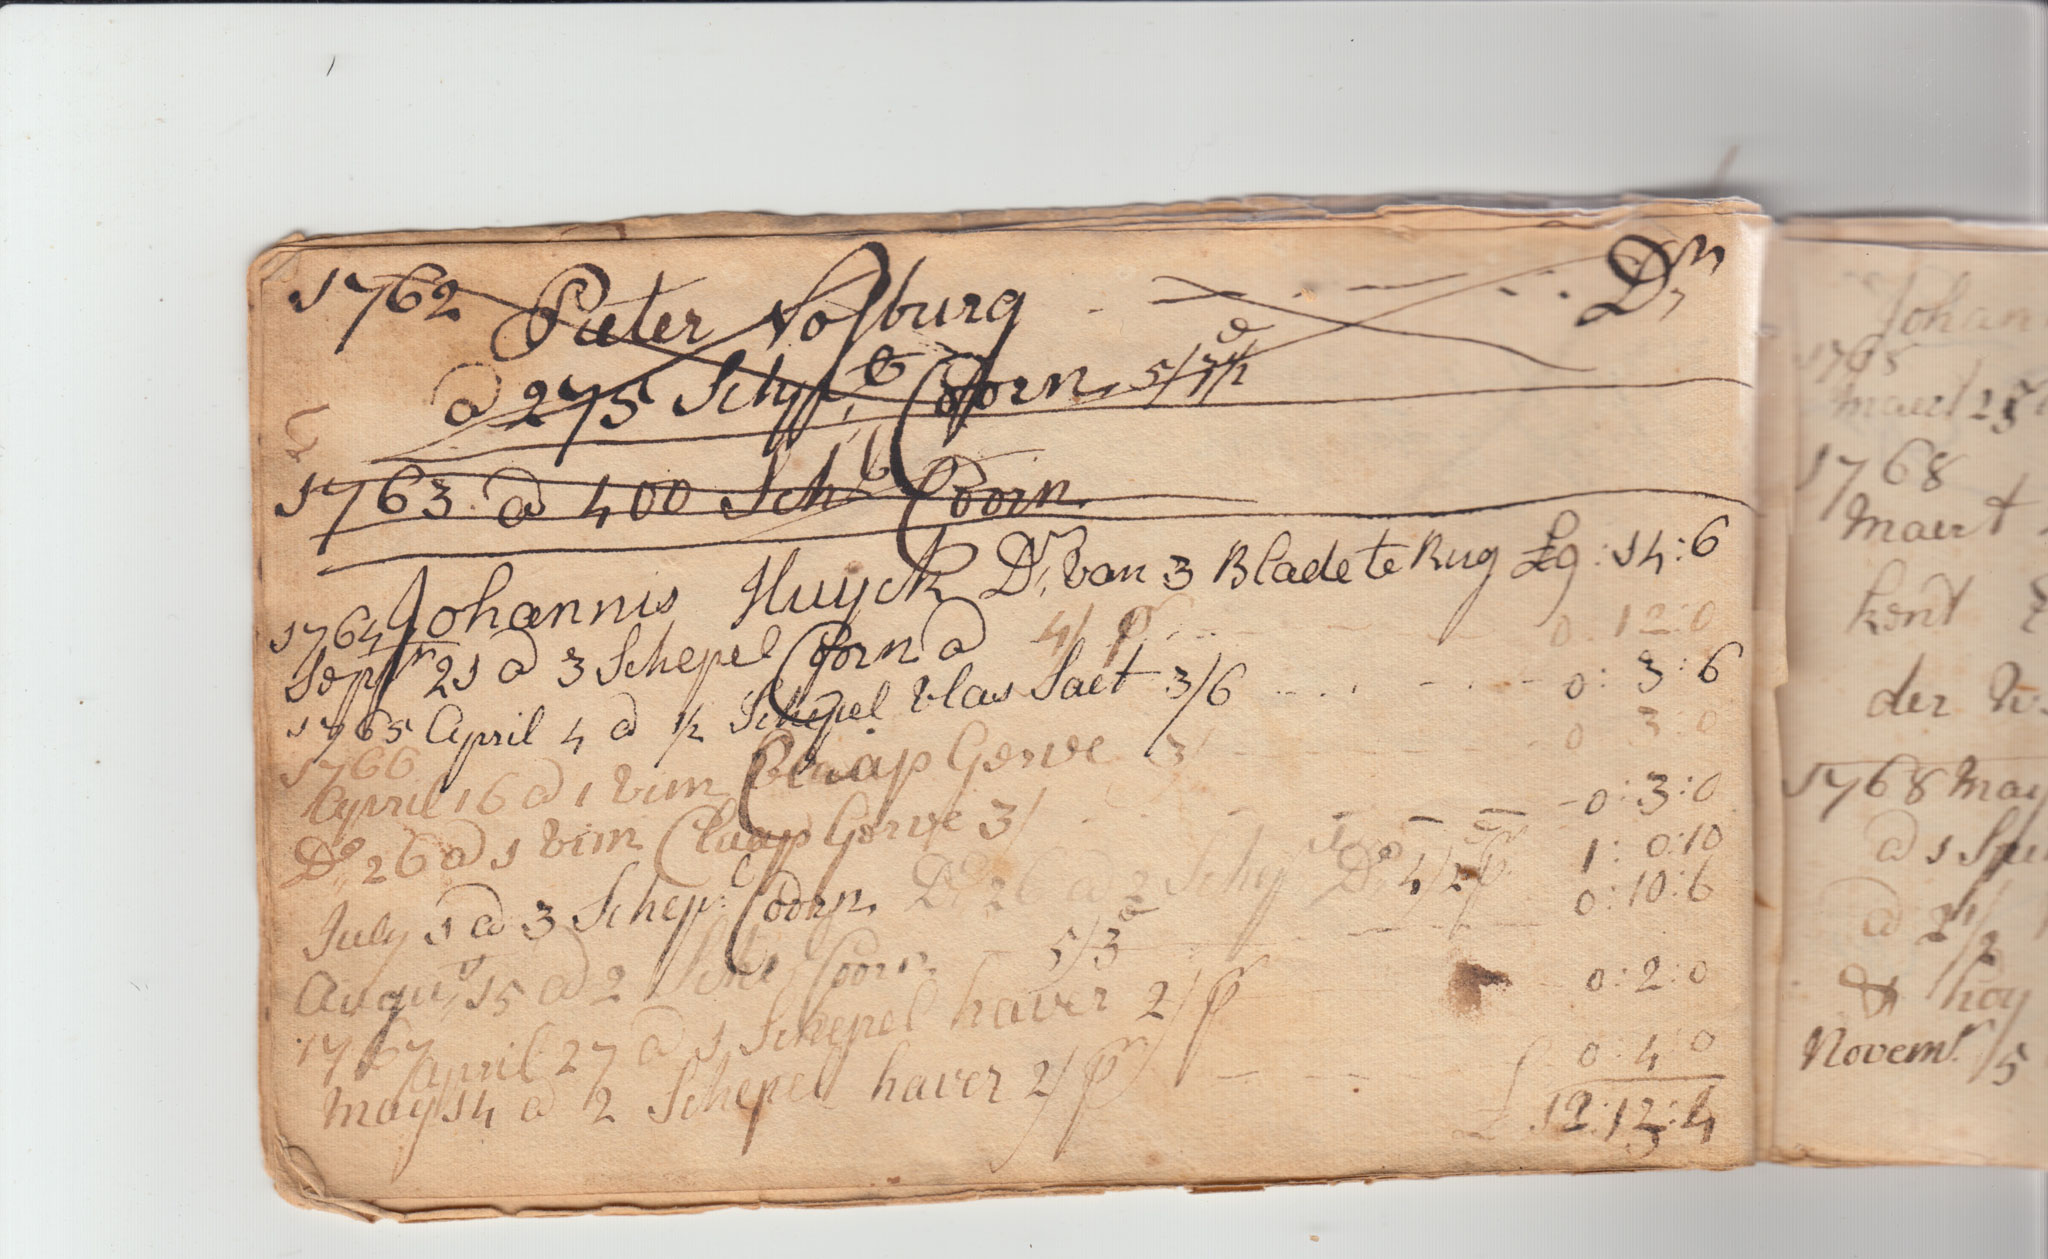 1762 Pieter Vosburg - - - - - Dr
@ 275 Schepl Coorn 5/7½ d
1763 @ 400 Sch Coorn
Johannis Huyck Dr van 3 Blade te Rug £9:14:6
1764
Sepr 21 @ 3 Schepel Coorn @ 4/ pr - - - 0:12:0
1765 April 4 @ ½ Schepel vlas Saet 3/6 - - - 0:3:6
1766
April 16 @ 1 vim Claap Gerve 3/ - - - 0 3:0
Do 26 @ 1 vim Claap Gerve 3/ - - - 0:3:0
July 1 @ 3 Schep: Coorn Do 26 @ 2 Schep Do 4/2 pr 1:0:10
Augut 15 @ 2 Schep Coorn 5/3 d - - - 0:10:6
1767
April 27 @ 1 Schepel haver 2/ pr - - - 0:2:0
May 14 @ 2 Schepel haver 2/ pr - - - 0:4:0
£ 12:13:4
Johan
1765
Maert 25
1768
Maert
kent
der
1768 May
@ 1
@ 2½
hoy
Novemr 5